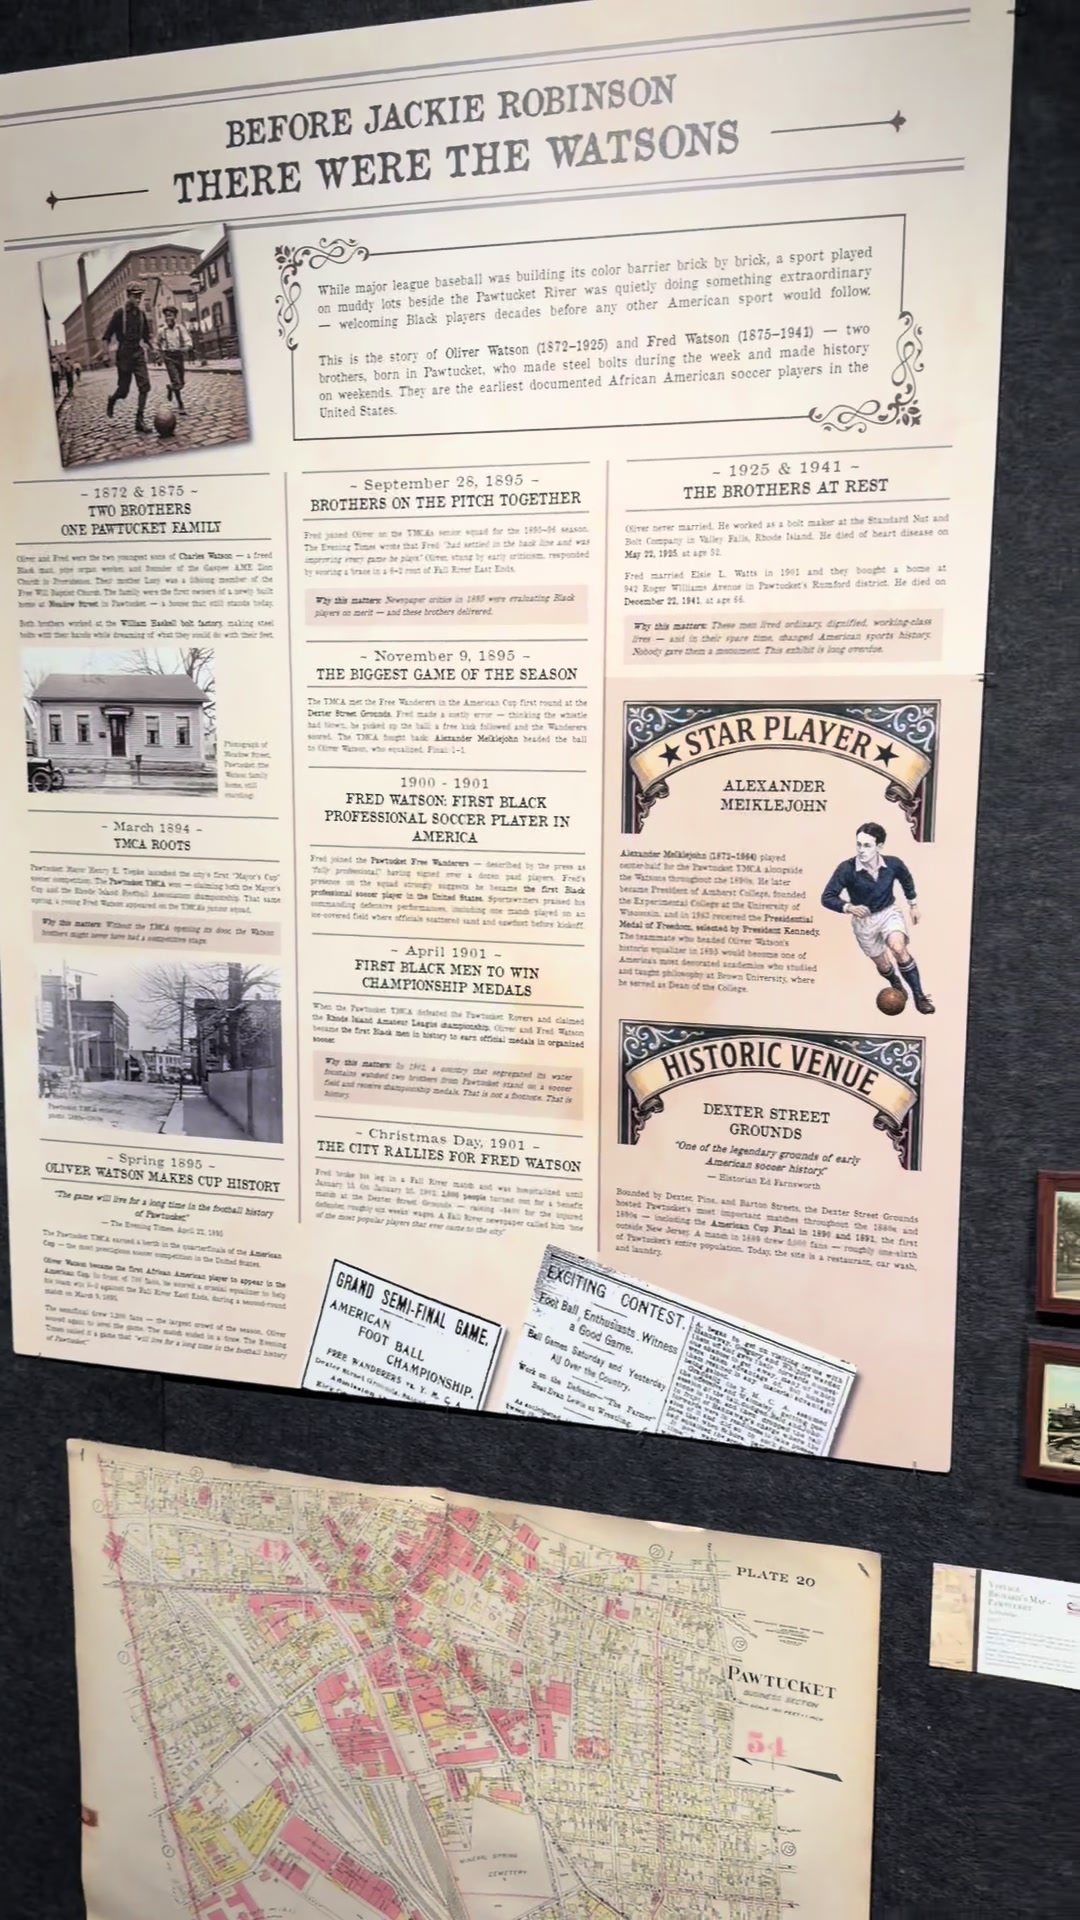 BEFORE JACKIE ROBINSON
THERE WERE THE WATSONS
While major league baseball was building its color barrier brick by brick, a sport played
on muddy lots beside the Pawtucket River was quietly doing something extraordinary
— welcoming Black players decades before any other American sport would follow.
This is the story of Oliver Watson (1872–1925) and Fred Watson (1875–1941) — two
brothers, born in Pawtucket, who made steel bolts during the week and made history
on weekends. They are the earliest documented African American soccer players in the
United States.
~ 1872 & 1875 ~
TWO BROTHERS
ONE PAWTUCKET FAMILY
Oliver and Fred were the two youngest sons of Charles Watson — a freed
Black man, pipe organ worker, and founder of the Gaspee AME Zion
Church in Providence. Their mother Lucy was a lifelong member of the
Free Will Baptist Church. The family were the first owners of a newly built
home at Meadow Street in Pawtucket — a house that still stands today.
Both brothers worked at the William Haskell bolt factory, making steel
bolts with their hands while dreaming of what they could do with their feet.
Photograph of
Meadow Street,
Pawtucket, the
Watson family
home, still
standing!
~ March 1894 ~
YMCA ROOTS
Pawtucket Mayor Henry E. Tiepke launched the city's first "Mayor's Cup"
soccer competition. The Pawtucket YMCA won — claiming both the Mayor's
Cup and the Rhode Island Football Association championship. That same
spring, a young Fred Watson appeared on the YMCA's junior squad.
Why this matters: Without the YMCA opening its door, the Watson
brothers might never have had a competitive stage.
Pawtucket YMCA
~ Spring 1895 ~
OLIVER WATSON MAKES CUP HISTORY
"The game will live for a long time in the football history
of Pawtucket"
— The Evening Times, April 22, 1895
The Pawtucket YMCA earned a berth in the quarterfinals of the American
Cup — the most prestigious soccer competition in the United States.
Oliver Watson became the first African American player to appear in the
American Cup. In front of 700 fans, he scored a crucial equalizer to help
his team win against the Fall River East Ends, during a second-round
match on March 9, 1895.
The semifinal drew fans — the largest crowd of the season. Oliver
scored again to level the game. The match ended in a draw. The Evening
Times called it a game that "will live for a long time in the football history
of Pawtucket."
~ September 28, 1895 ~
BROTHERS ON THE PITCH TOGETHER
Fred joined Oliver on the YMCA's senior squad for the 1895–96 season.
The Evening Times wrote that Fred "had settled in the back line and was
improving every game he plays." Oliver, stung by early criticism, responded
by scoring a brace in a 6–2 rout of Fall River East Ends.
Why this matters: Newspaper critics in 1895 were evaluating Black
players on merit — and these brothers delivered.
~ November 9, 1895 ~
THE BIGGEST GAME OF THE SEASON
The YMCA met the Free Wanderers in the American Cup first round at the
Dexter Street Grounds. Fred made a costly error — thinking the whistle
had blown, he picked up the ball; a free kick followed and the Wanderers
scored. The YMCA fought back: Alexander Meiklejohn headed the ball
to Oliver Watson, who equalized. Final: 1–1.
1900 - 1901
FRED WATSON: FIRST BLACK
PROFESSIONAL SOCCER PLAYER IN
AMERICA
Fred joined the Pawtucket Free Wanderers — described by the press as
"fully professional," having signed over a dozen paid players. Fred's
presence on the squad strongly suggests he became the first Black
professional soccer player in the United States. Sportswriters praised his
commanding defensive performances, including one match played on an
ice-covered field where officials scattered sand and sawdust before kickoff.
~ April 1901 ~
FIRST BLACK MEN TO WIN
CHAMPIONSHIP MEDALS
When the Pawtucket YMCA defeated the Pawtucket Rovers and claimed
the Rhode Island Amateur League championship, Oliver and Fred Watson
became the first Black men in history to earn official medals in organized
soccer.
Why this matters: In a country that segregated its water
fountains watched two brothers from Pawtucket stand on a soccer
field and receive championship medals. That is not a footnote. That is
history.
~ Christmas Day, 1901 ~
THE CITY RALLIES FOR FRED WATSON
Fred broke his leg in a Fall River match and was hospitalized until
January 15. On January 25, 1902, people turned out for a benefit
match at the Dexter Street Grounds — raising for the injured
defender, roughly six weeks' wages. A Fall River newspaper called him "one
of the most popular players that ever came to the city."
~ 1925 & 1941 ~
THE BROTHERS AT REST
Oliver never married. He worked as a bolt maker at the Standard Nut and
Bolt Company in Valley Falls, Rhode Island. He died of heart disease on
May 22, 1925, at age 52.
Fred married Elsie L. Watts in 1901 and they bought a home at
942 Roger Williams Avenue in Pawtucket's Rumford district. He died on
December 22, 1941, at age 66.
Why this matters: These men lived ordinary, dignified, working-class
lives — and in their spare time, changed American sports history.
Nobody gave them a monument. This exhibit is long overdue.
STAR PLAYER
ALEXANDER
MEIKLEJOHN
Alexander Meiklejohn (1872–1964) played
center-half for the Pawtucket YMCA alongside
the Watsons throughout the 1890s. He later
became President of Amherst College, founded
the Experimental College at the University of
Wisconsin, and in 1963 received the Presidential
Medal of Freedom, selected by President Kennedy.
The teammate who headed Oliver Watson's
historic equalizer in 1895 would become one of
America's most decorated academics who studied
and taught philosophy at Brown University, where
he served as Dean of the College.
HISTORIC VENUE
DEXTER STREET
GROUNDS
"One of the legendary grounds of early
American soccer history."
— Historian Ed Farnsworth
Bounded by Dexter, Pine, and Barton Streets, the Dexter Street Grounds
hosted Pawtucket's most important matches throughout the 1880s and
1890s — including the American Cup Final in 1890 and 1891, the first
outside New Jersey. A match in 1889 drew 5,000 fans — roughly one-sixth
of Pawtucket's entire population. Today, the site is a restaurant, car wash,
and laundry.
GRAND SEMI-FINAL GAME.
AMERICAN
FOOT BALL
CHAMPIONSHIP.
FREE WANDERERS vs. Y. M. C. A.
Dexter Street Grounds,
EXCITING CONTEST.
Foot Ball Enthusiasts Witness
a Good Game.
Ball Games Saturday and Yesterday
All Over the Country.
Work on the Defender—"The Farmer"
Beat Evan Lewis at Wrestling.
PLATE 20
PAWTUCKET
BUSINESS SECTION
54
MINERAL SPRING
CEMETERY
VINTAGE
RICHARD'S MAP -
PAWTUCKET